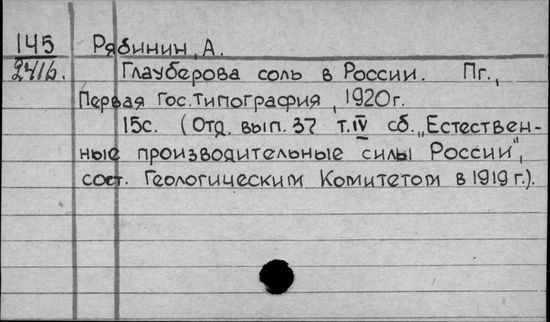 145 Рябинин, А.
2416. Глауберова соль в России. Пг.,
Первая Гос. Типография, 1920г.
15с. (Отд. вып. 37 т. IV сб. „Естествен-
ные производительные силы России",
сост. Геологическим Комитетом в 1919 г.).